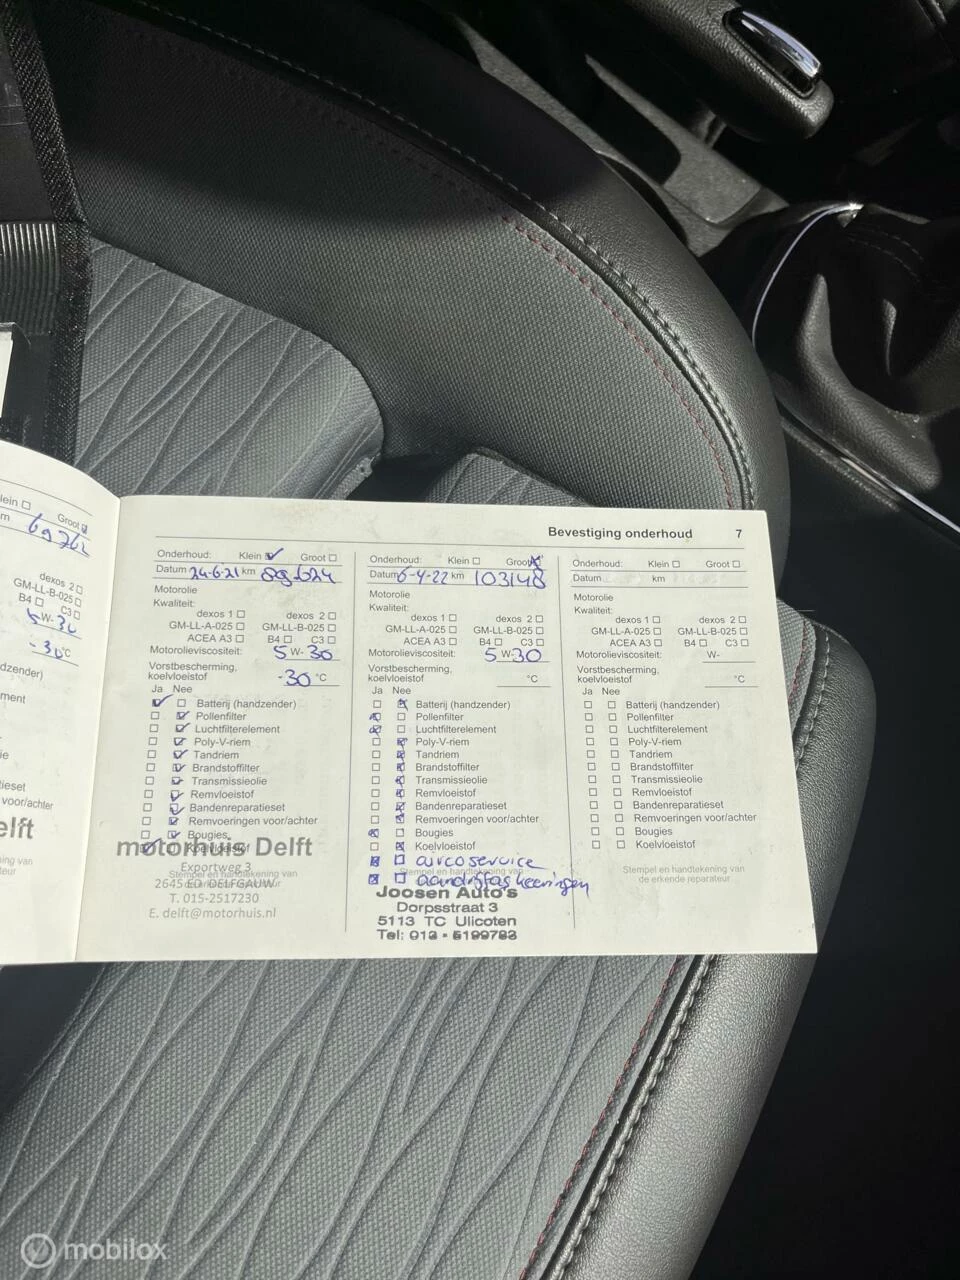 Klein ☐
Groot ☑
69762
dexos 2 ☐
GM-LL-B-025 ☐
B4 ☐ C3 ☐
5 W- 30
-30 °C
Bevestiging onderhoud 7
Onderhoud: Klein ☑ Groot ☐
Datum 24-6-21 km 89.624
Motorolie
Kwaliteit:
dexos 1 ☐ dexos 2 ☐
GM-LL-A-025 ☐ GM-LL-B-025 ☐
ACEA A3 ☐ B4 ☐ C3 ☐
Motorolieviscositeit: 5 W- 30
Vorstbescherming,
koelvloeistof -30 °C
Ja Nee
☑ ☐ Batterij (handzender)
☐ ☑ Pollenfilter
☐ ☑ Luchtfilterelement
☐ ☑ Poly-V-riem
☐ ☑ Tandriem
☐ ☑ Brandstoffilter
☐ ☑ Transmissieolie
☐ ☑ Remvloeistof
☐ ☑ Bandenreparatieset
☐ ☑ Remvoeringen voor/achter
☐ ☑ Bougies
☑ ☐ Koelvloeistof
motorhuis Delft
Exportweg 3
Stempel en handtekening van
de erkende reparateur
2645 ED DELFGAUW
T. 015-2517230
E. delft@motorhuis.nl
Onderhoud: Klein ☐ Groot ☒
Datum 6-4-22 km 103148
Motorolie
Kwaliteit:
dexos 1 ☐ dexos 2 ☐
GM-LL-A-025 ☐ GM-LL-B-025 ☐
ACEA A3 ☐ B4 ☐ C3 ☐
Motorolieviscositeit: 5 W- 30
Vorstbescherming,
koelvloeistof °C
Ja Nee
☐ ☒ Batterij (handzender)
☒ ☐ Pollenfilter
☒ ☐ Luchtfilterelement
☐ ☒ Poly-V-riem
☐ ☒ Tandriem
☐ ☒ Brandstoffilter
☐ ☒ Transmissieolie
☐ ☒ Remvloeistof
☐ ☒ Bandenreparatieset
☐ ☒ Remvoeringen voor/achter
☒ ☐ Bougies
☐ ☒ Koelvloeistof
☒ ☐ aircoservice
☒ ☐ aandrijfas keerringen
Joosen Auto's
Dorpsstraat 3
5113 TC Ulicoten
Tel: 013 - 5199783
Onderhoud: Klein ☐ Groot ☐
Datum km
Motorolie
Kwaliteit:
dexos 1 ☐ dexos 2 ☐
GM-LL-A-025 ☐ GM-LL-B-025 ☐
ACEA A3 ☐ B4 ☐ C3 ☐
Motorolieviscositeit: W-
Vorstbescherming,
koelvloeistof °C
Ja Nee
☐ ☐ Batterij (handzender)
☐ ☐ Pollenfilter
☐ ☐ Luchtfilterelement
☐ ☐ Poly-V-riem
☐ ☐ Tandriem
☐ ☐ Brandstoffilter
☐ ☐ Transmissieolie
☐ ☐ Remvloeistof
☐ ☐ Bandenreparatieset
☐ ☐ Remvoeringen voor/achter
☐ ☐ Bougies
☐ ☐ Koelvloeistof
Stempel en handtekening van
de erkende reparateur
mobilox